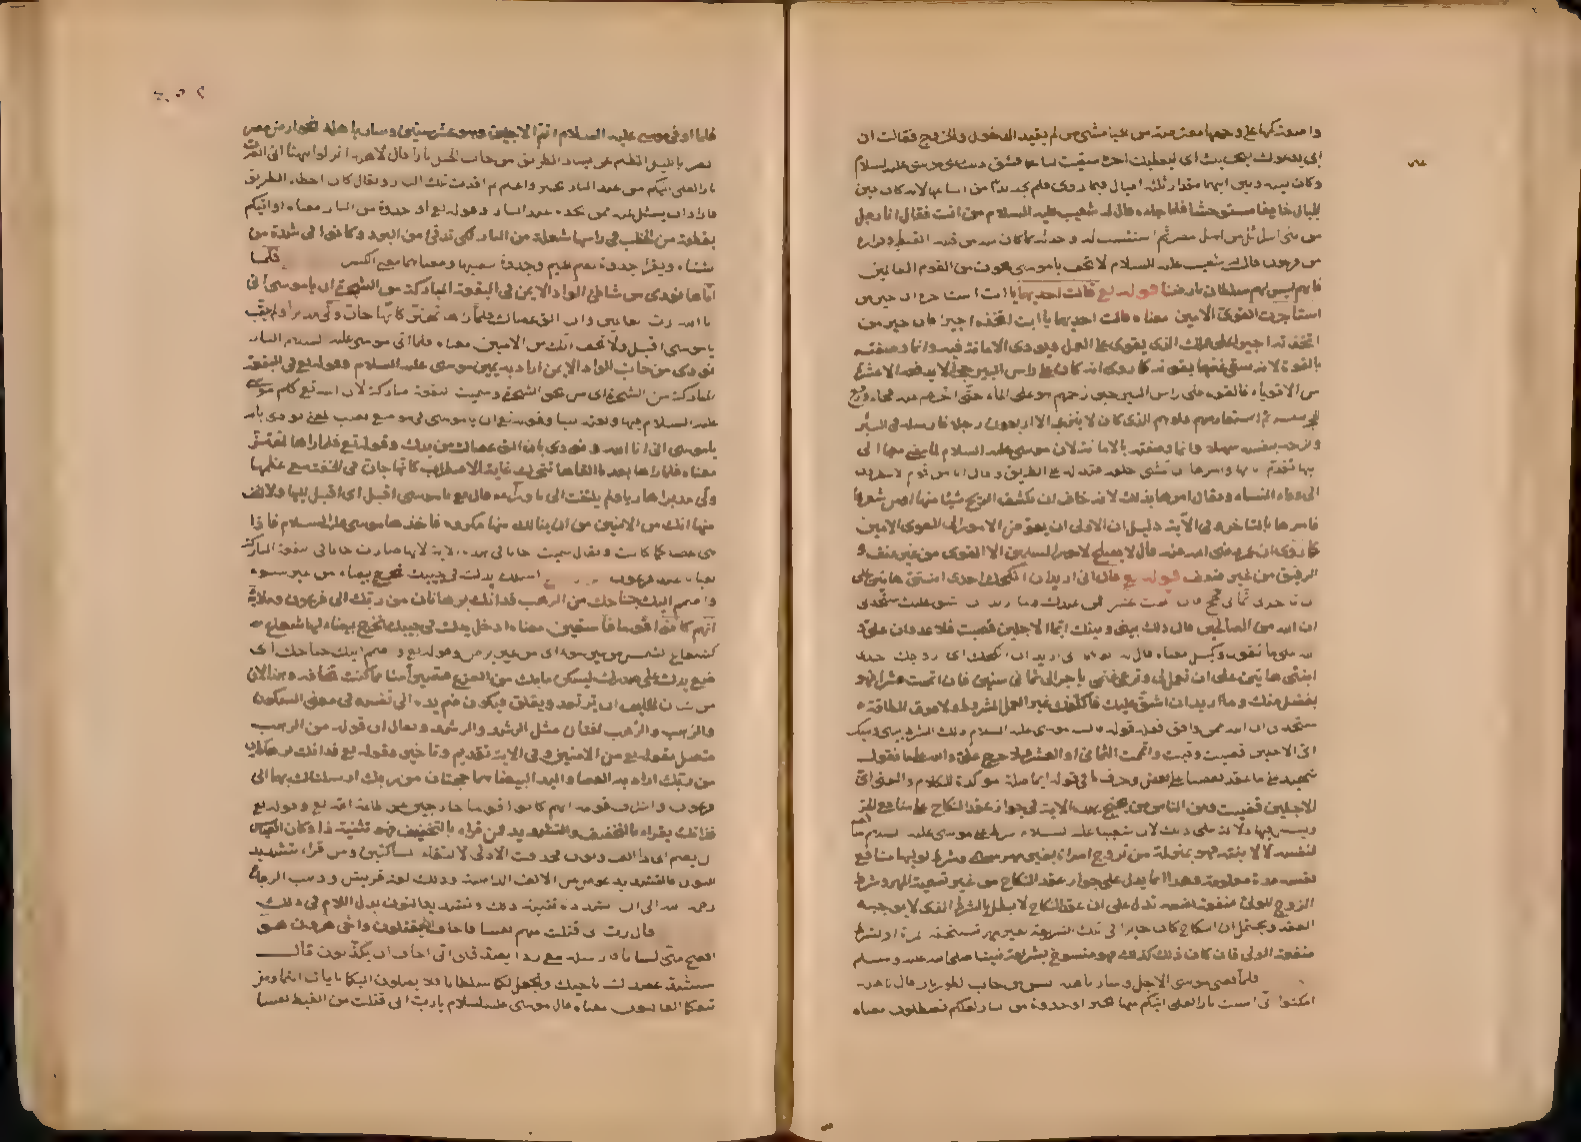 واضعة كمها على وجهها معترضة من الحيا مشى من لم يعتد الدخول والخروج فقالت ان
ابي يدعوك ليجزيك اي ليعطيك اجر ما سقيت لنا فشق ذلك على موسى عليه السلام
وكان بينه وبين ابيها مقدار ثلثة اميال فيما روى فلم يجد بدا من اتباعها لانه كان بين
الجبال خايفا مستوحشا فلما جاءه قال له شعيب عليه السلام من انت فقال انا رجل
من بني اسرائيل من اهل مصر ثم انتسب له وحدثه بما كان منه من قتله القبطي وفراره
من فرعون فقال له شعيب عليه السلام لا تخف يا موسى نجوت من القوم الظالمين
فانهم ليس لهم سلطان بارضنا قوله تع قالت احديهما يا ابت استاجره ان خير من
استأجرت القوي الامين معناه قالت احديهما يا ابت اتخذه اجيرا فان خير من
اتخذته اجيرا على عملك الذي يقوى على العمل ويودي الامانة فيه وانما وصفته
بالقوة لانه سقى غنمها بقوته كما روى انه كان على راس البير حجر لا يرفعه الا عشرة
من الاقوياء فالقوه على راس البير حين زحمهم موسى على الماء حتى اخرهم عنه فجاء ورفع
الحجر بنفسه ثم استعار منهم دلوهم الذي كان لا ينزعه الا اربعون رجلا فارسله في البير
ونزعه بنفسه سهلا وانما وصفته بالامانة لان موسى عليه السلام لما مشى معها الى
ابيها تقدم وامرها ان تمشي خلفه فتدله على الطريق وقال انا من قوم لا ننظر
الى وراء النساء ويقال امرها بذلك لانه خاف ان تكشف الريح شيئا منها او من شعرها
فامرها بالتاخر وفي الآية دليل ان الاولى ان يفوض الامور الى القوي الامين
كما روى ان عمر رضي الله عنه قال لا يصلح لامور المسلمين الا القوي من غير عنف و
الرفيق من غير ضعف قوله تع قال اني اريد ان انكحك احدى ابنتي هاتين على
ان تاجرني ثماني حجج فان اتممت عشرا فمن عندك وما اريد ان اشق عليك ستجدني
ان شاء الله من الصالحين قال ذلك بيني وبينك ايما الاجلين قضيت فلا عدوان علي و
الله على ما نقول وكيل معناه قال له ابوها اني اريد ان انكحك اي ازوجك احدى
ابنتي هاتين على ان تعمل لي وترعى غنمي باجر الى ثماني سنين فان اتممت عشرا فهو
بفضل منك وما اريد ان اشق عليك فاكلفك غير العمل المشروط ولا فوق الطاقة
ستجدني ان شاء الله من وافق فعله قوله قال موسى عليه السلام ذلك الشرط بيني وبينك
اي الاجلين قضيت وفيت واتممت الثماني او العشر فلا حرج علي والله على ما نقول
شهيد على ما عقد بعضنا على بعض وحرف ما في قوله ايما صلة موكدة للكلام والمعنى اي
الاجلين قضيت ومن الناس من يحتج بهذه الآية في جواز عقد النكاح على منافع الحر
وليس فيها دلالة على ذلك لان شعيبا عليه السلام شرط على موسى عليه السلام منافع
لنفسه لا لابنته فهو بمنزلة من تزوج امراة بغير مهر مسمى وشرط لوليها منافع
نفسه مدة معلومة وهذا انما يدل على جواز عقد النكاح من غير تسمية المهر وشرط
الزوج للولي منفعة نفسه تدل على ان عقد النكاح لا يبطل بالشرط الذي لا يوجبه
العقد ويحتمل ان النكاح كان جائزا في تلك الشريعة بغير مهر تستحقه المرأة او بشرط
منفعة الولي فان كان ذلك كذلك فهو منسوخ بشريعة نبينا صلى الله عليه وسلم
فلما قضى موسى الاجل وسار باهله انس من جانب الطور نارا قال لاهله
امكثوا اني انست نارا لعلي اتيكم منها بخبر او جذوة من النار لعلكم تصطلون معناه
فلما اوفى موسى عليه السلام اتم الاجلين وهو عشر سنين وسار باهله نحو ارض مصر
ابصر بالليل المظلم عن يسار الطريق من جانب الجبل نارا قال لاهله انزلوا ههنا اني ابصرت
نارا لعلي اتيكم من عند النار بخبر واعلم لم اوقدت تلك النار ويقال كان اخطاء الطريق
فاراد ان يسئل عنه ممن يجده عند النار وقوله تع او جذوة من النار معناه او اتيكم
بقطعة من الحطب في راسها شعلة من النار لكي تدفئ من البرد وكانوا في شدة من
شتاء ويقرا جذوة بضم الجيم وجذوة بنصبها ومعناهما مع الكسر فلما
اتاها نودي من شاطئ الواد الايمن في البقعة المباركة من الشجرة ان يا موسى اني
انا الله رب العالمين وان الق عصاك فلما رآها تهتز كانها جان ولى مدبرا ولم يعقب
يا موسى اقبل ولا تخف انك من الآمنين معناه فلما اتى موسى عليه السلام النار
نودي من جانب الواد الايمن اراد به يمين موسى عليه السلام وقوله تع في البقعة
المباركة من الشجرة اي من نحو الشجرة وسميت البقعة مباركة لان الله تع كلم موسى
عليه السلام فيها وبعثه نبيا وقوله تع ان يا موسى في موضع نصب المعنى نودي بانه
يا موسى اني انا الله ونودي بان الق عصاك من يدك وقوله تع فلما راها تهتز
معناه فلما راها بعد ما القاها تتحرك غاية الاضطراب كانها جان في الخفة مع عظمها
ولى مدبرا هاربا ولم يلتفت الى ما ورآءه قال تع يا موسى اقبل اي اقبل اليها ولا تخف
منها انك من الآمنين من ان ينالك منها مكروه فاخذها موسى عليه السلام فاذا
هي عصا كما كانت ويقال سميت جانا في هذه الآية لانها صارت جانا في البقعة المباركة
ثعبانا عند فرعون تع اسلك يدك في جيبك تخرج بيضاء من غير سوء
واضمم اليك جناحك من الرهب فذانك برهانان من ربك الى فرعون وملائه
انهم كانوا قوما فاسقين معناه ادخل يدك في جيبك تخرج بيضاء لها شعاع
كشعاع الشمس من غير سوء اي من غير برص وقوله تع واضمم اليك جناحك اي
ضع يدك على صدرك ليسكن ما بك من الفزع فتصير آمنا مما كنت تخافه وهذا لان
من شان الخايف ان يرتعد ويقلق فيكون ضم يده الى نفسه في معنى السكون
والرهب والرهب لغتان مثل الرشد والرشد ويقال ان قوله من الرهب
متصل بقوله تع من الآمنين وفي الآية تقديم وتاخير وقوله تع فذانك برهانان
من ربك اراد به العصا واليد البيضا هما حجتان من ربك ارسلناك بهما الى
فرعون واشراف قومه انهم كانوا قوما خارجين عن طاعة الله تع وقوله تع
فذانك يقراء بالتخفيف والتشديد فمن قراء بالتخفيف فهو تثنية ذا وكان القياس
ان يضم اي ذا الف ونون فحذفت الاولى لالتقاء الساكنين ومن قراء بتشديد
النون فالتشديد عوض من الالف الذاهبة وذلك لغة قريش وذهب الزجاج
رحمه الله الى ان تشديده تثنية ذلك وتشديد النون بدل اللام في ذلك
قال رب اني قتلت منهم نفسا فاخاف ان يقتلون واخي هرون هو
افصح مني لسانا فارسله معي ردا يصدقني اني اخاف ان يكذبون قال
سنشد عضدك باخيك ونجعل لكما سلطانا فلا يصلون اليكما باياتنا انتما ومن
اتبعكما الغالبون معناه قال موسى عليه السلام يا رب اني قتلت من القبط نفسا